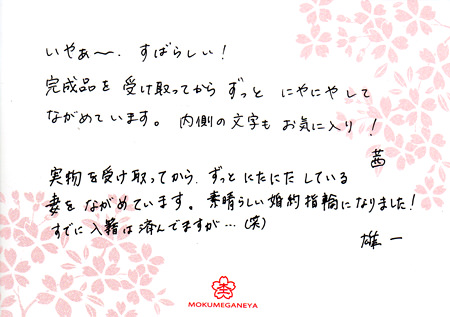 いやぁ〜、すばらしい!
完成品を受け取ってからずっと にやにやして
ながめています。内側の文字も お気に入り!
茜
実物を受け取ってから、ずっとにたにたしている
妻をながめています。素晴らしい婚約指輪になりました!
すでに入籍は済んでますが…(笑)
雄一
MOKUMEGANEYA